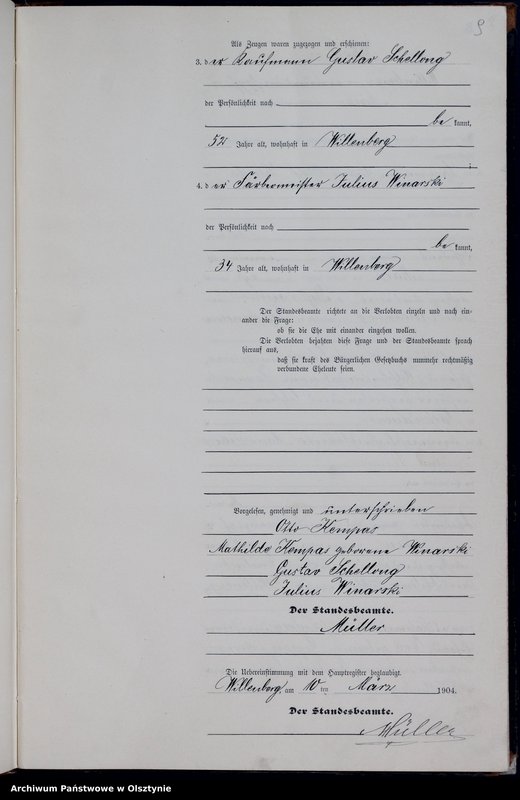 9
Als Zeugen waren zugezogen und erschienen:
3. der Kaufmann Gustav Schellong
der Persönlichkeit nach
be kannt,
52 Jahre alt, wohnhaft in Willenberg
;
4. der Färbermeister Julius Winarski
der Persönlichkeit nach
be kannt,
34 Jahre alt, wohnhaft in Willenberg
Der Standesbeamte richtete an die Verlobten einzeln und nach ein-
ander die Frage:
ob sie die Ehe mit einander eingehen wollen.
Die Verlobten bejahten diese Frage und der Standesbeamte sprach
hierauf aus,
daß sie kraft des Bürgerlichen Gesetzbuchs nunmehr rechtmäßig
verbundene Eheleute seien.
Vorgelesen, genehmigt und unterschrieben
Otto Kempas
Mathilde Kempas geborene Winarski
Gustav Schellong
Julius Winarski
Der Standesbeamte.
Müller
Die Uebereinstimmung mit dem Hauptregister beglaubigt.
Willenberg, am 10 ten März 1904.
Der Standesbeamte.
Müller
Archiwum Państwowe w Olsztynie